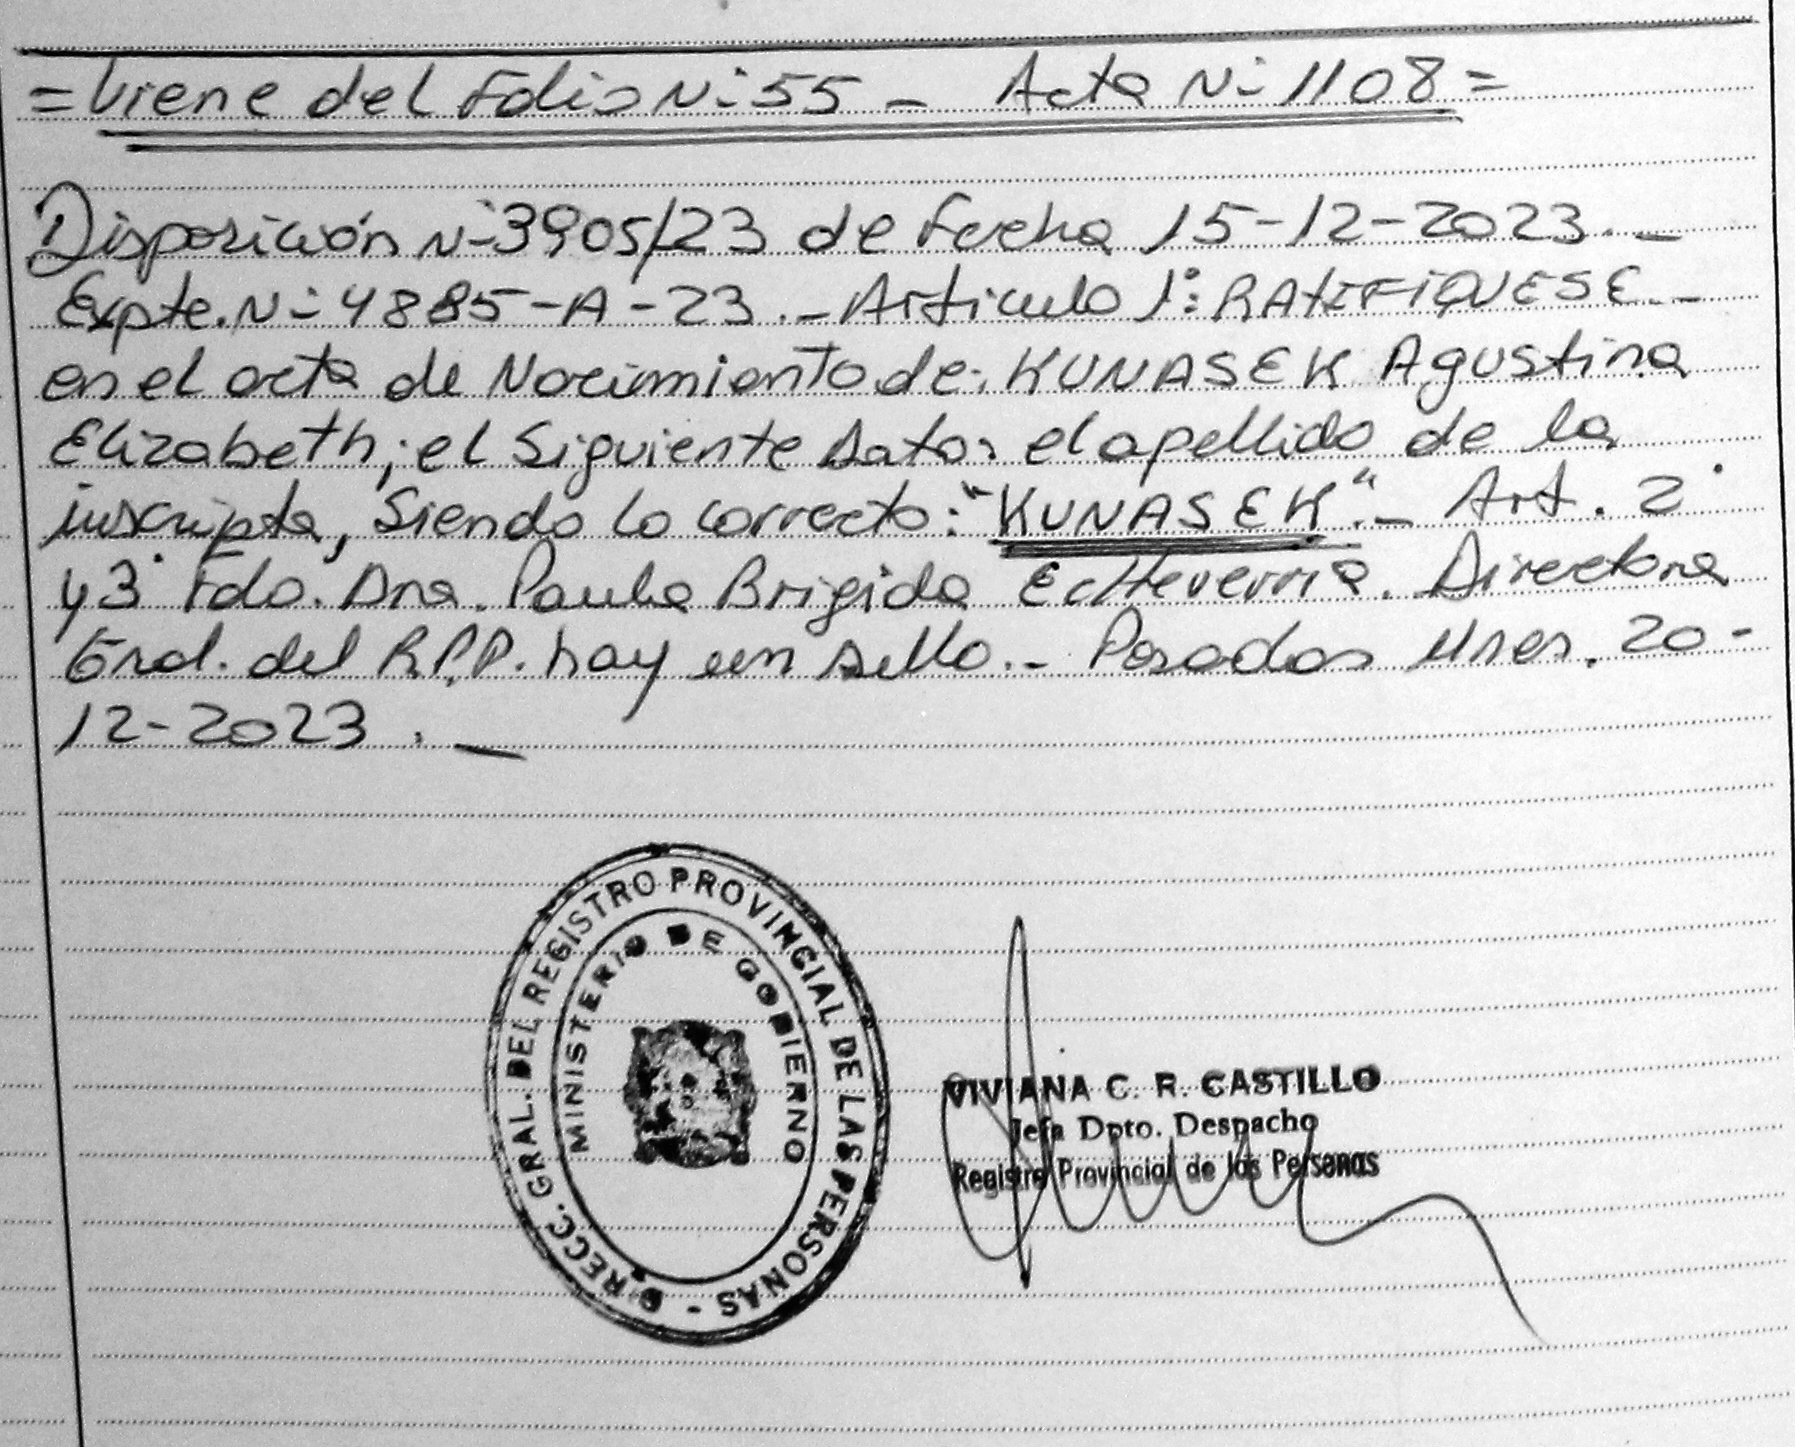 = Viene del Folio N° 55 - Acta N° 1108 =
Disposición N° 3905/23 de fecha 15-12-2023.-
Expte. N° 4885-A-23.- Articulo 1°: RATIFIQUESE.-
en el acta de Nacimiento de: KUNASEK Agustina
Elizabeth; el siguiente dato: el apellido de la
inscripta, siendo lo correcto: "KUNASEK".- Art. 2°
y 3° Fdo. Dra. Paula Brigida Echeverria. Directora
Gral. del R.P.P. hay un sello.- Posadas Mnes. 20-
12-2023.-
DIRECC. GRAL. DEL REGISTRO PROVINCIAL DE LAS PERSONAS -
MINISTERIO DE GOBIERNO
VIVIANA C. R. CASTILLO
Jefa Dpto. Despacho
Registro Provincial de las Personas